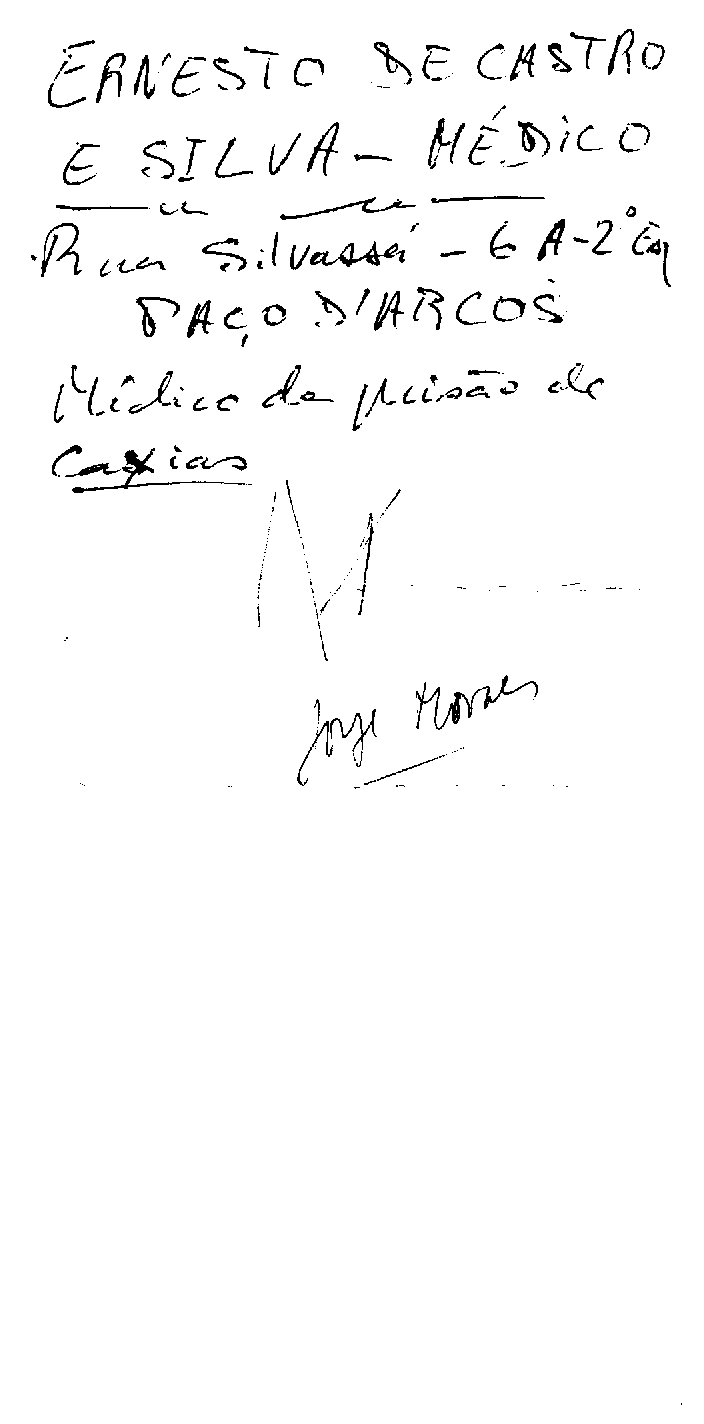 ERNESTO DE CASTRO
E SILVA - MÉDICO
Rua Silvassá - 6 A - 2º Esq
PAÇO D'ARCOS
Médico da prisão de
Caxias
Jorge Moraes